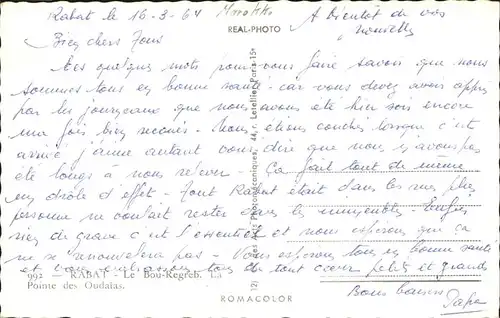 Rabat le 16-3-64 Marokko
A bientôt de vos nouvelles
REAL-PHOTO
Bien chers Tous
Ces quelques mots pour vous faire savoir que nous
sommes tous en bonne santé car vous devez avoir appris
par les journeaux que nous avons été hier soir encore
une fois bien secoués. Nous étions couchés lorsque c'est
arrivé, j'aime autant vous dire que nous n'avons pas
été longs à nous relever. Ça fait tout de même
un drôle d'effet. Tout Rabat était dans les rues, plus
personne ne voulait rester dans les immeubles. Enfin
rien de grave c'est l'essentiel et nous espérons que ça
ne se renouvelera pas. Vous espérons tous en bonne santé
et vous embrassons tous de tout cœur petits et grands
Bons baisers
Papa
992 - RABAT - Le Bou-Regreb. La
Pointe des Oudaïas.
ROMACOLOR
Les Arts Photomécaniques, 44, r. Letellier, Paris-15e